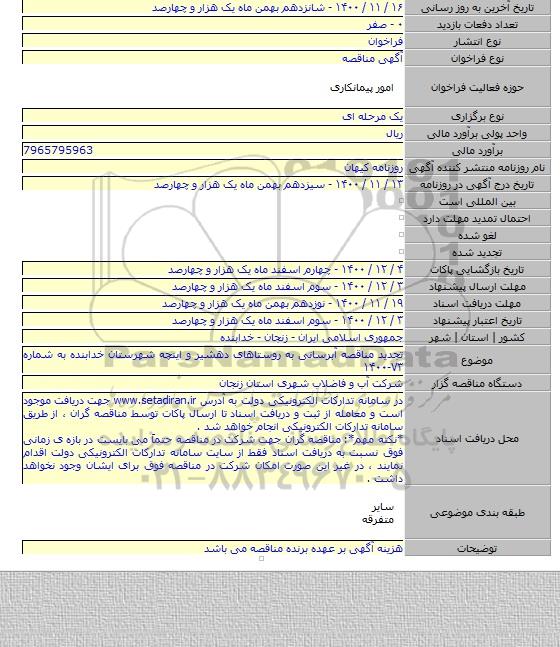 تاریخ آخرین به روز رسانی ۱۶ / ۱۱ / ۱۴۰۰ - شانزدهم بهمن ماه یک هزار و چهارصد
تعداد دفعات بازدید ۰ - صفر
نوع انتشار فراخوان
نوع فراخوان آگهی مناقصه
حوزه فعالیت فراخوان امور پیمانکاری
نوع برگزاری یک مرحله ای
واحد پولی برآورد مالی ریال
برآورد مالی 7965795963
نام روزنامه منتشر کننده آگهی روزنامه کیهان
تاریخ درج آگهی در روزنامه ۱۳ / ۱۱ / ۱۴۰۰ - سیزدهم بهمن ماه یک هزار و چهارصد
بین المللی است
احتمال تمدید مهلت دارد
لغو شده
تجدید شده
تاریخ بازگشایی پاکات ۴ / ۱۲ / ۱۴۰۰ - چهارم اسفند ماه یک هزار و چهارصد
مهلت ارسال پیشنهاد ۳ / ۱۲ / ۱۴۰۰ - سوم اسفند ماه یک هزار و چهارصد
مهلت دریافت اسناد ۱۹ / ۱۱ / ۱۴۰۰ - نوزدهم بهمن ماه یک هزار و چهارصد
تاریخ اعتبار پیشنهاد ۳ / ۱۲ / ۱۴۰۰ - سوم اسفند ماه یک هزار و چهارصد
کشور | استان | شهر جمهوری اسلامی ایران - زنجان - خدابنده
موضوع تجدید مناقصه آبرسانی به روستاهای دهشیر و اینچه شهرستان خدابنده به شماره
۱۴۰۰-۷۳
دستگاه مناقصه گزار شرکت آب و فاضلاب شهری استان زنجان
محل دریافت اسناد در سامانه تدارکات الکترونیکی دولت به آدرس www.setadiran.ir جهت دریافت موجود
است و معامله از ثبت و دریافت اسناد تا ارسال پاکات توسط مناقصه گران ، از طریق
سامانه تدارکات الکترونیکی انجام خواهد شد .
*نکته مهم*: مناقصه گران جهت شرکت در مناقصه حتما می بایست در بازه ی زمانی
فوق نسبت به دریافت اسناد فقط از سایت سامانه تدارکات الکترونیکی دولت اقدام
نمایند ، در غیر این صورت امکان شرکت در مناقصه فوق برای ایشان وجود نخواهد
داشت .
طبقه بندی موضوعی سایر
متفرقه
توضیحات هزینه آگهی بر عهده برنده مناقصه می باشد
ParsNamadData
۰۲۱-۸۸۳۴۹۶۷۰-۵